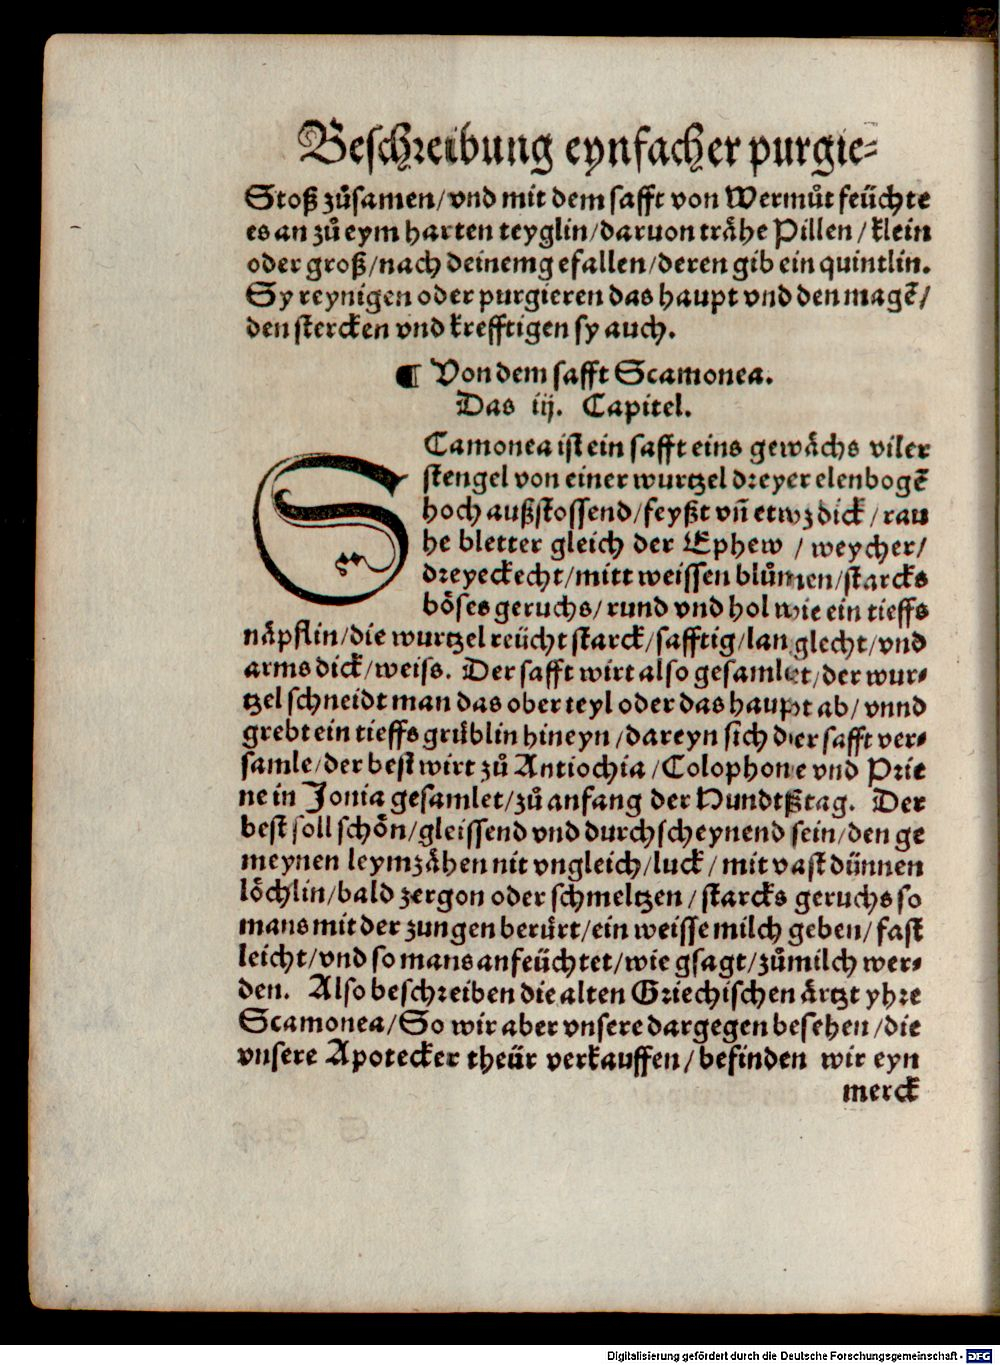 Beschreibung eynfacher purgie⸗
Stoß zůsamen/vnd mit dem safft von Wermůt feüchte
es an zů eym harten teyglin/daruon trähe Pillen/klein
oder groß/nach deinem gefallen/deren gib ein quintlin.
Sy reynigen oder purgieren das haupt vnd den magē/
den stercken vnd krefftigen sy auch.
¶ Von dem safft Scamonea.
Das iij. Capitel.
SCamonea ist ein safft eins gewächs viler
stengel von einer wurtzel dreyer elenbogē
hoch außstossend/feyßt vñ etwz dick/rau
he bletter gleich der Ephew/weycher/
dreyeckecht/mitt weissen blůmen/starcks
böses geruchs/rund vnd hol wie ein tieffs
näpflin/die wurtzel reücht starck/safftig/langlecht/vnd
arms dick/weiss. Der safft wirt also gesamlet/der wur⸗
tzel schneidt man das ober teyl oder das haupt ab/vnnd
grebt ein tieffs grüblin hineyn/dareyn sich der safft ver⸗
samle/der best wirt zů Antiochia/Colophone vnd Prie
ne in Jonia gesamlet/zů anfang der Hundtßtag. Der
best soll schön/gleissend vnd durchscheynend sein/den ge
meynen leymzähen nit vngleich/luck/mit vast dünnen
löchlin/bald zergon oder schmeltzen/starcks geruchs so
mans mit der zungen berürt/ein weisse milch geben/fast
leicht/vnd so mans anfeüchtet/wie gsagt/zůmilch wer⸗
den. Also beschreiben die alten Griechischen ärtzt yhre
Scamonea/So wir aber vnsere dargegen besehen/die
vnsere Apotecker theür verkauffen/befinden wir eyn
merck
Digitalisierung gefördert durch die Deutsche Forschungsgemeinschaft - DFG